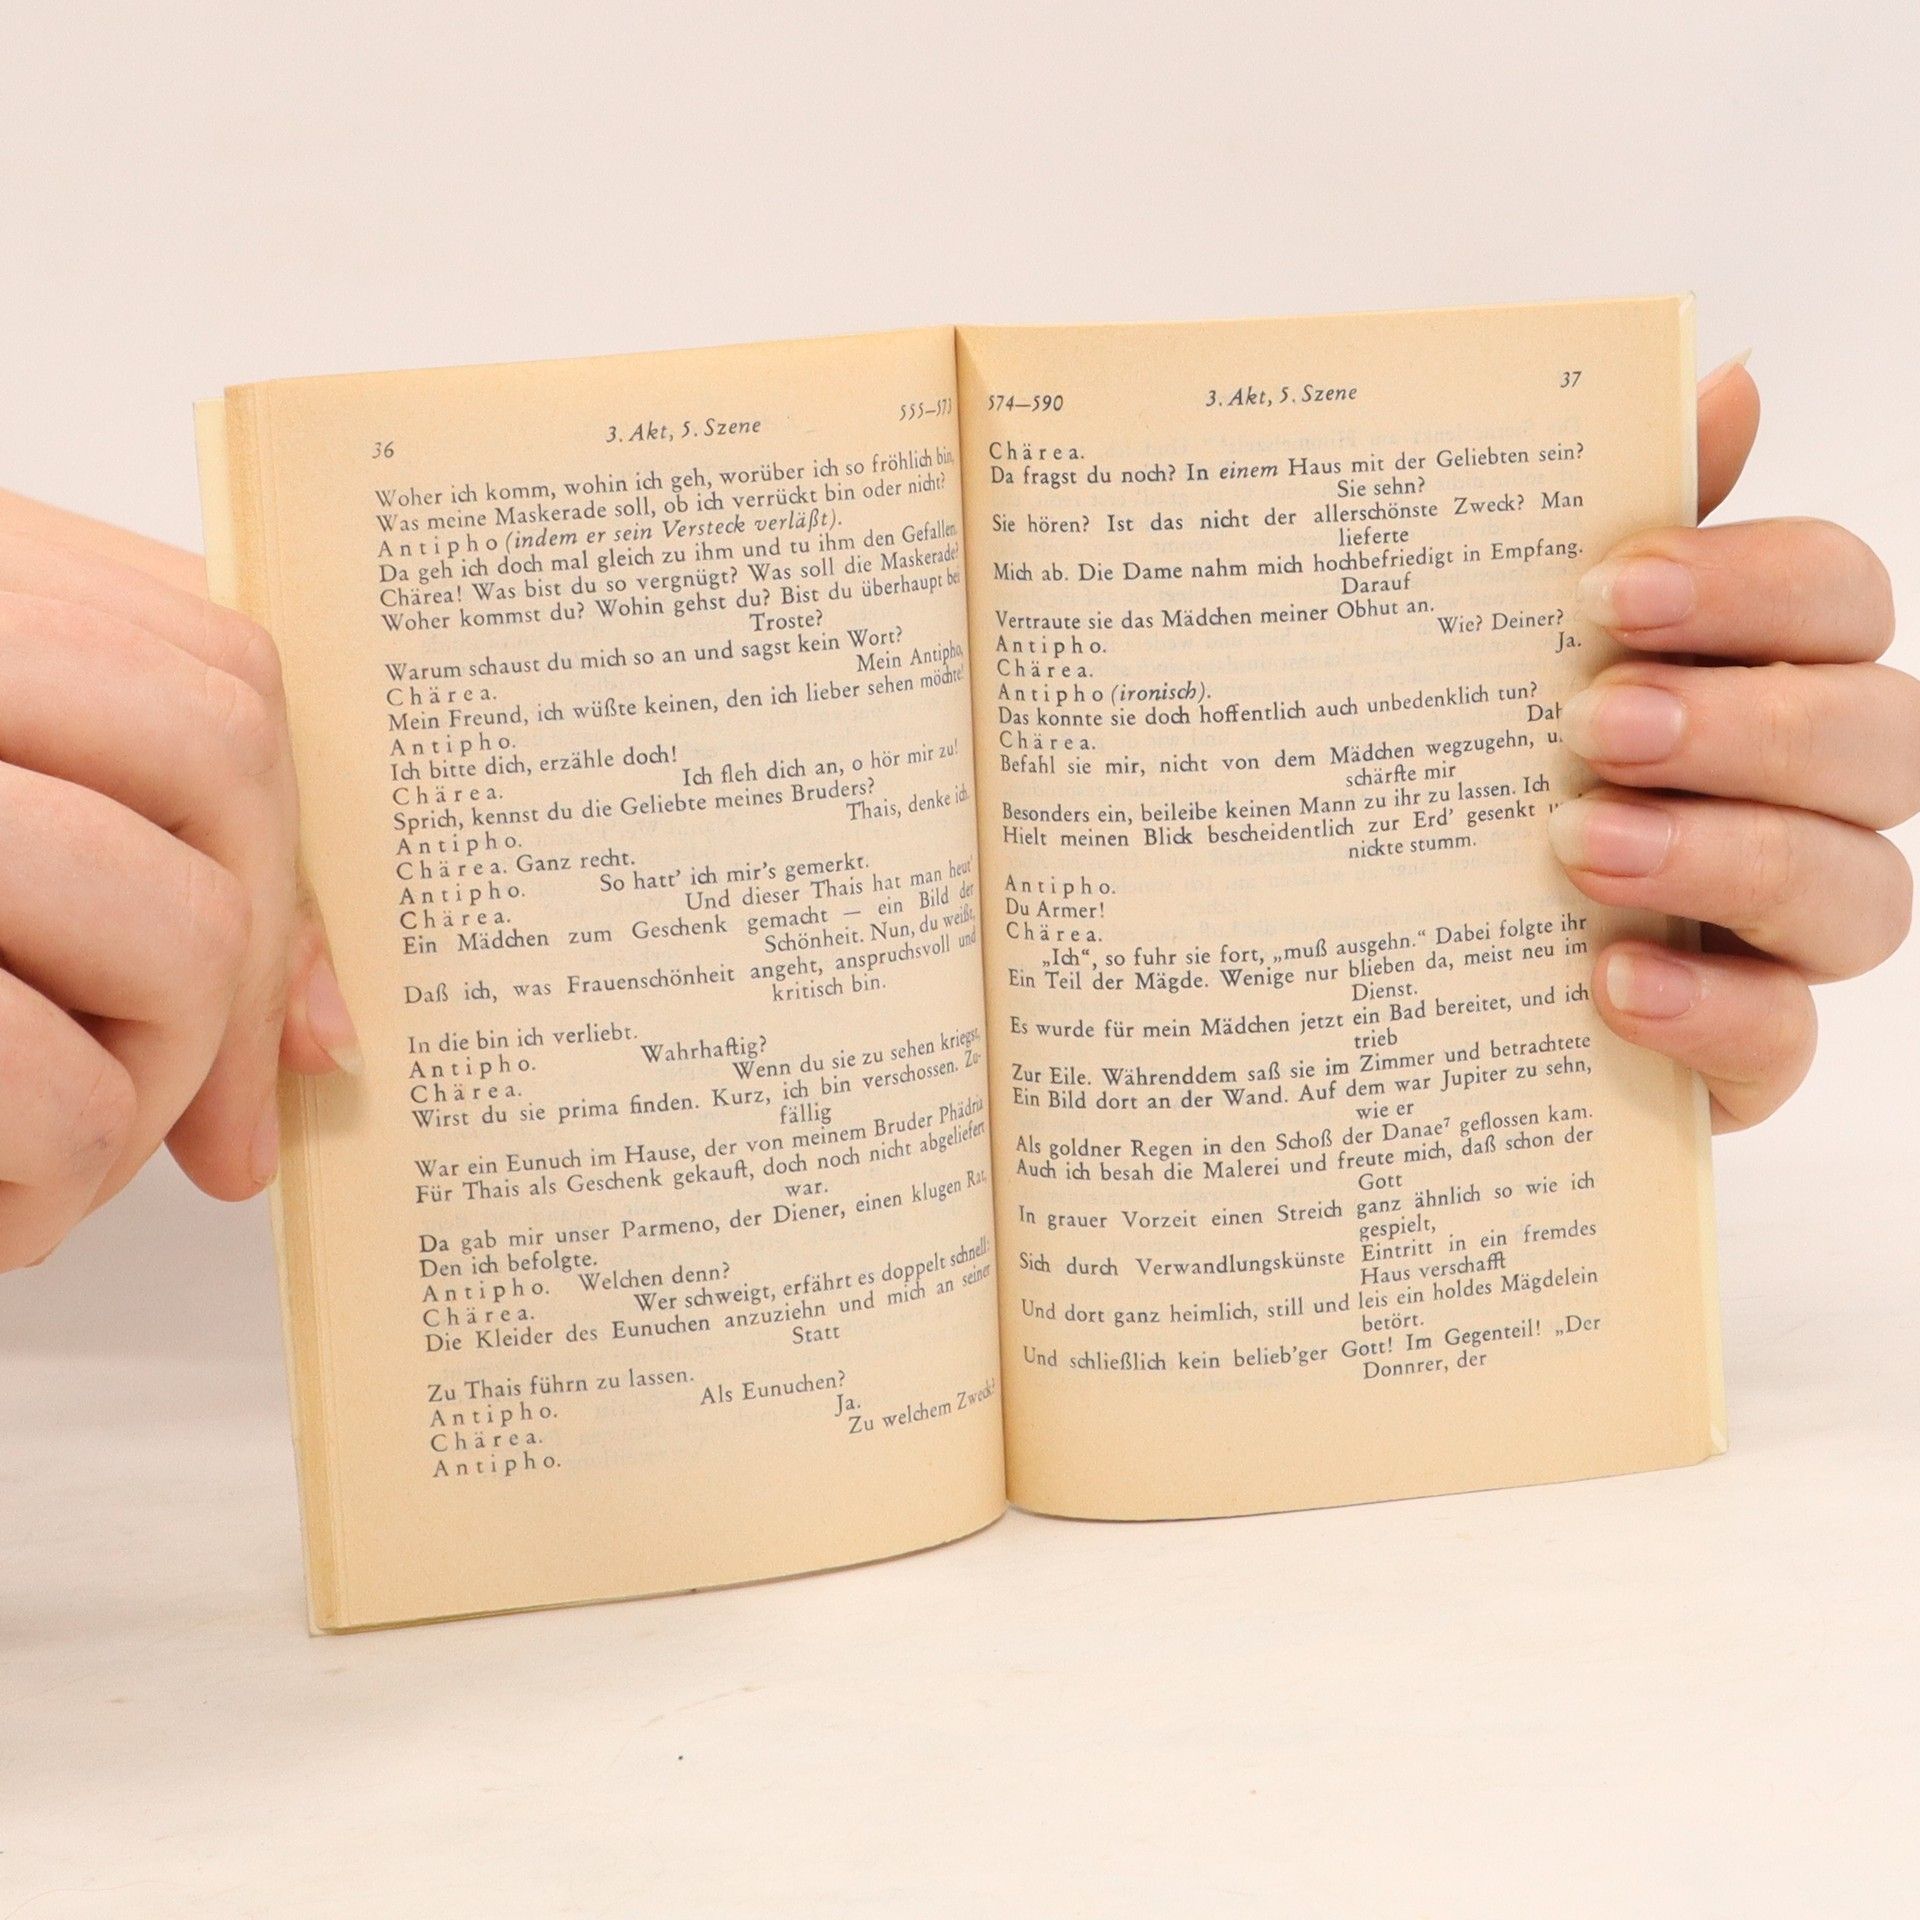 36 3. Akt, 5. Szene 555—573
Woher ich komm, wohin ich geh, worüber ich so fröhlich bin,
Was meine Maskerade soll, ob ich verrückt bin oder nicht?
Antipho (indem er sein Versteck verläßt).
Da geh ich doch mal gleich zu ihm und tu ihm den Gefallen.
Chärea! Was bist du so vergnügt? Was soll die Maskerade?
Woher kommst du? Wohin gehst du? Bist du überhaupt bei
Troste?
Warum schaust du mich so an und sagst kein Wort?
Chärea. Mein Antipho,
Mein Freund, ich wüßte keinen, den ich lieber sehen möchte!
Antipho.
Ich bitte dich, erzähle doch!
Chärea. Ich fleh dich an, o hör mir zu!
Sprich, kennst du die Geliebte meines Bruders?
Antipho. Thais, denke ich.
Chärea. Ganz recht.
Antipho. So hatt' ich mir's gemerkt.
Chärea. Und dieser Thais hat man heut'
Ein Mädchen zum Geschenk gemacht — ein Bild der
Schönheit. Nun, du weißt,
Daß ich, was Frauenschönheit angeht, anspruchsvoll und
kritisch bin.
In die bin ich verliebt.
Antipho. Wahrhaftig?
Chärea. Wenn du sie zu sehen kriegst,
Wirst du sie prima finden. Kurz, ich bin verschossen. Zu-
fällig
War ein Eunuch im Hause, der von meinem Bruder Phädria
Für Thais als Geschenk gekauft, doch noch nicht abgeliefert
war.
Da gab mir unser Parmeno, der Diener, einen klugen Rat,
Den ich befolgte.
Antipho. Welchen denn?
Chärea. Wer schweigt, erfährt es doppelt schnell:
Die Kleider des Eunuchen anzuziehn und mich an seiner
Statt
Zu Thais führn zu lassen.
Antipho. Als Eunuchen?
Chärea. Ja.
Antipho. Zu welchem Zweck?
574—590 3. Akt, 5. Szene 37
Chärea.
Da fragst du noch? In einem Haus mit der Geliebten sein?
Sie sehn?
Sie hören? Ist das nicht der allerschönste Zweck? Man
lieferte
Mich ab. Die Dame nahm mich hochbefriedigt in Empfang.
Darauf
Vertraute sie das Mädchen meiner Obhut an.
Antipho. Wie? Deiner?
Chärea. Ja.
Antipho (ironisch).
Das konnte sie doch hoffentlich auch unbedenklich tun?
Chärea.
Befahl sie mir, nicht von dem Mädchen wegzugehn,
schärfte mir
Besonders ein, beileibe keinen Mann zu ihr zu lassen. Ich
Hielt meinen Blick bescheidentlich zur Erd' gesenkt
nickte stumm.
Antipho.
Du Armer!
Chärea.
„Ich“, so fuhr sie fort, „muß ausgehn.“ Dabei folgte ihr
Ein Teil der Mägde. Wenige nur blieben da, meist neu im
Dienst.
Es wurde für mein Mädchen jetzt ein Bad bereitet, und ich
trieb
Zur Eile. Währenddem saß sie im Zimmer und betrachtete
Ein Bild dort an der Wand. Auf dem war Jupiter zu sehn,
wie er
Als goldner Regen in den Schoß der Danae⁷ geflossen kam.
Auch ich besah die Malerei und freute mich, daß schon der
Gott
In grauer Vorzeit einen Streich ganz ähnlich so wie ich
gespielt,
Sich durch Verwandlungskünste Eintritt in ein fremdes
Haus verschafft
Und dort ganz heimlich, still und leis ein holdes Mägdelein
betört.
Und schließlich kein belieb'ger Gott! Im Gegenteil! „Der
Donnrer, der